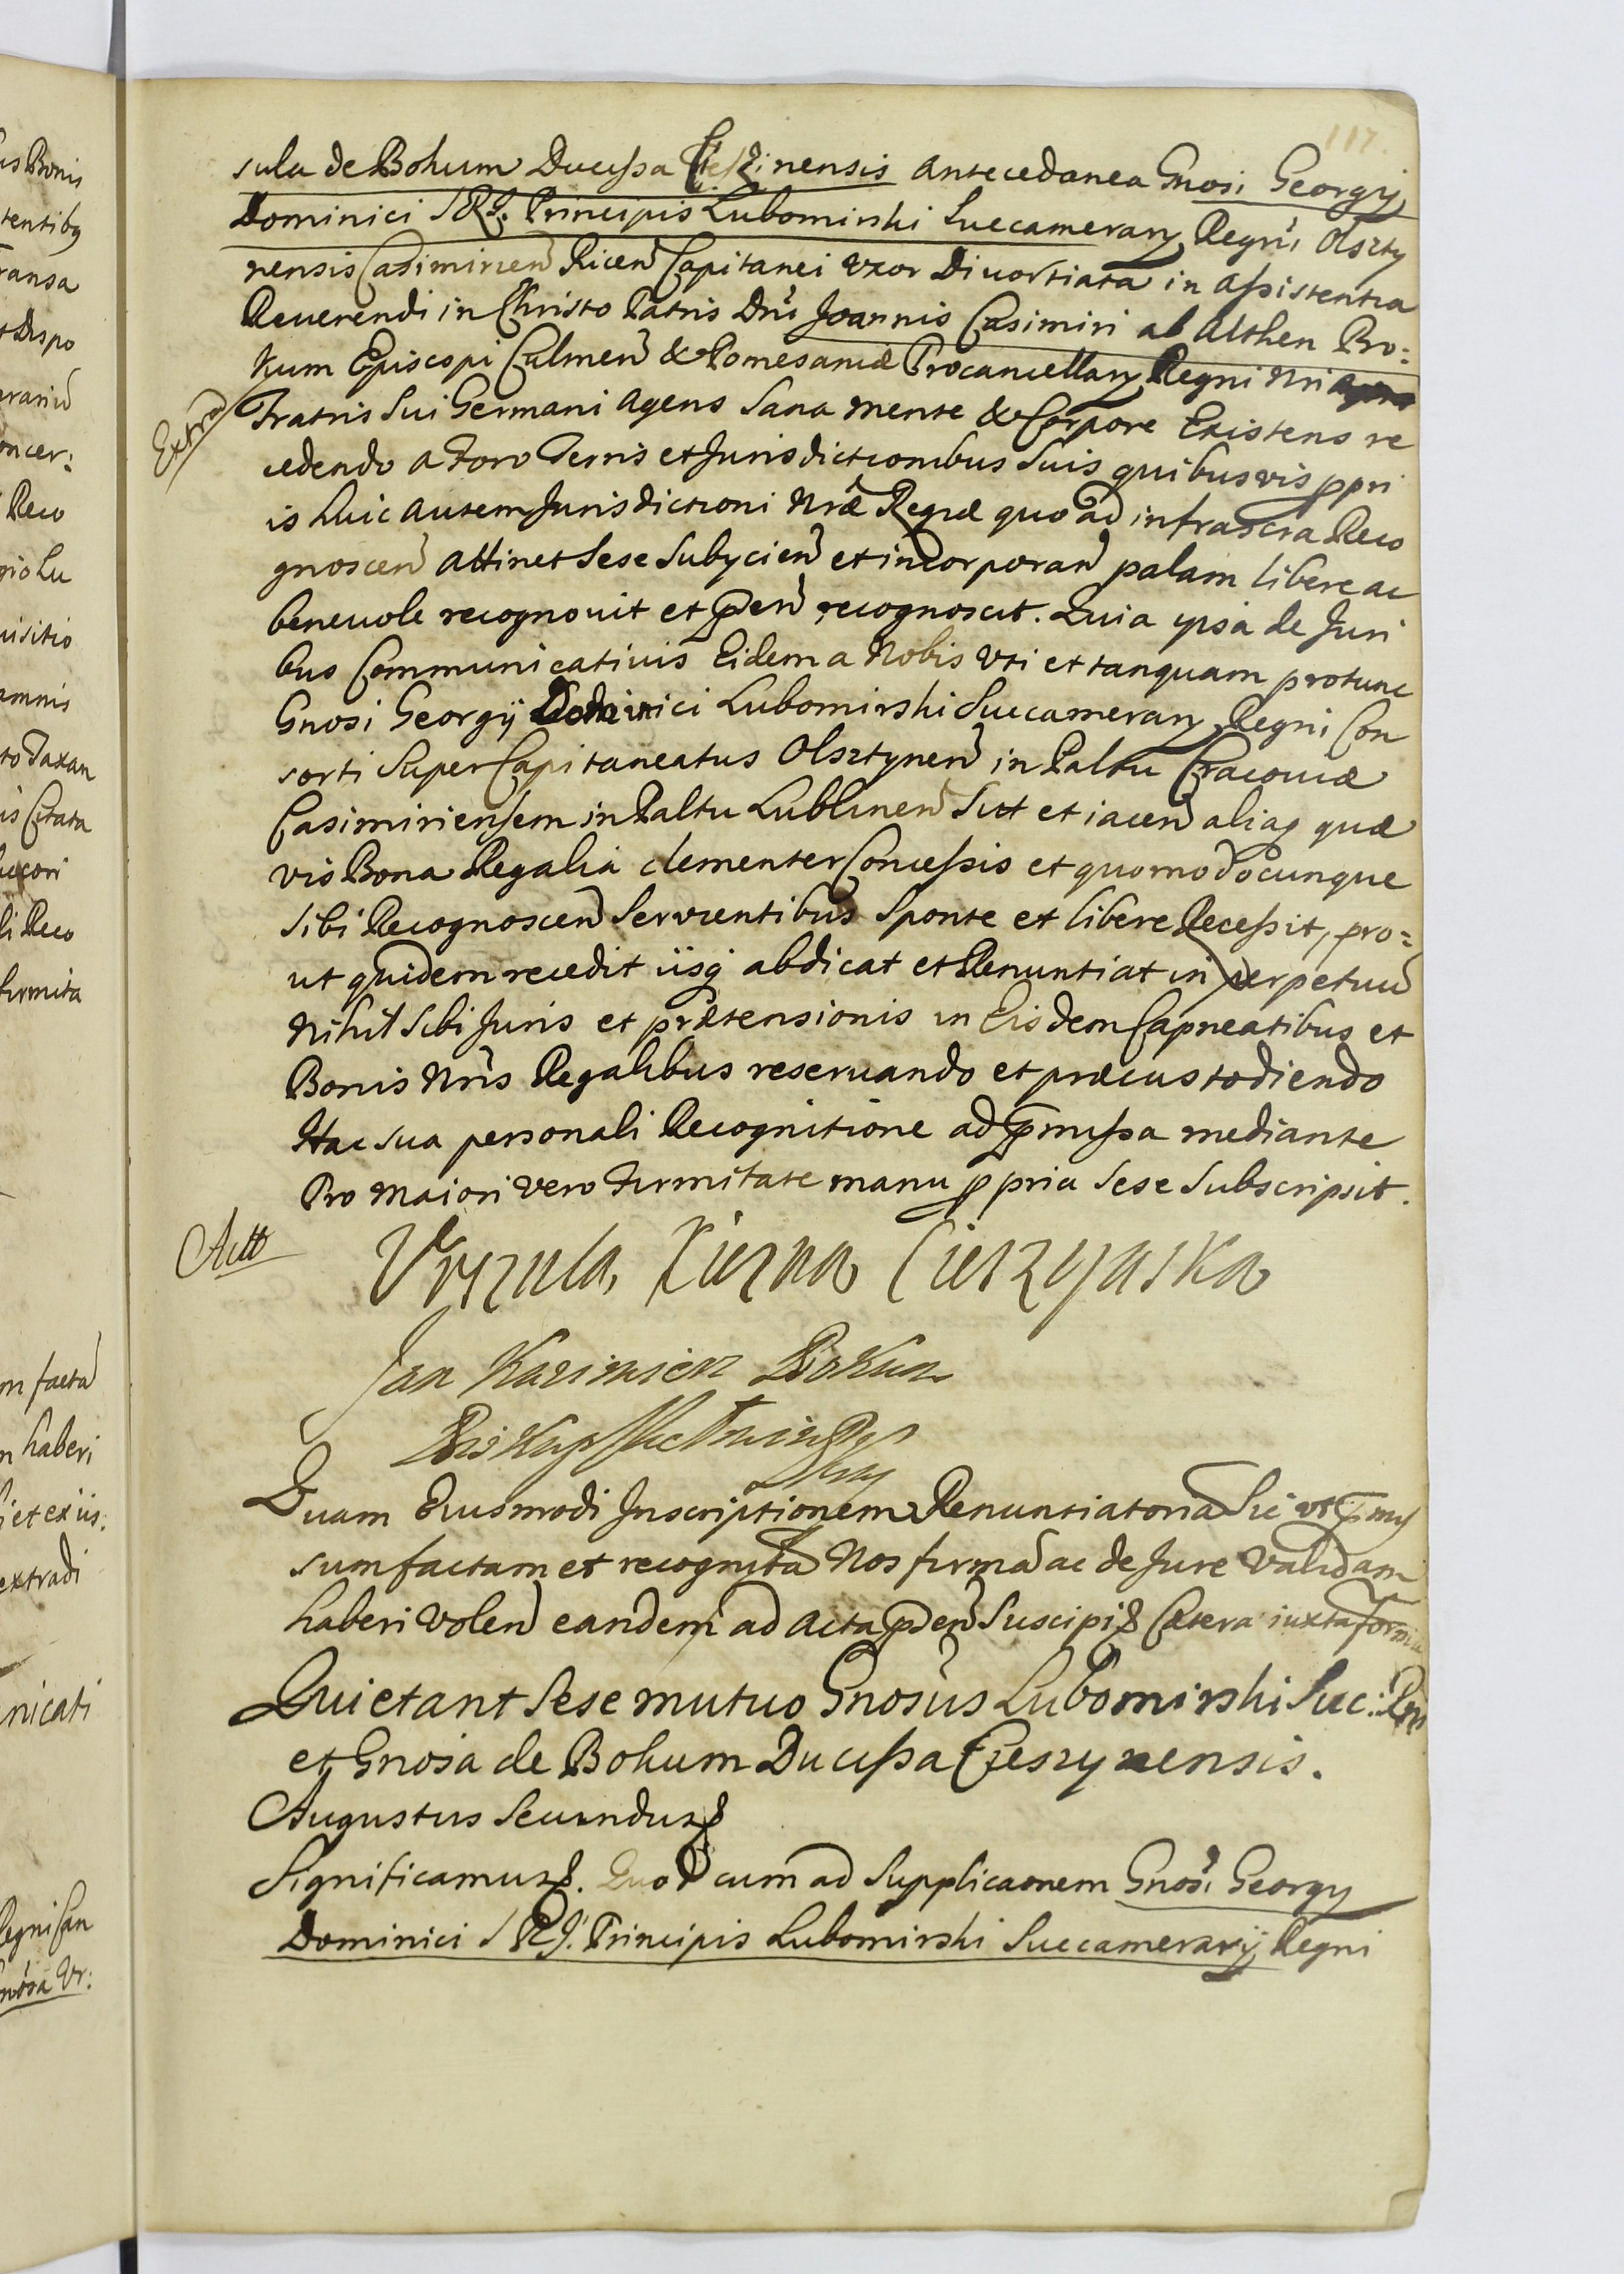 117.
sula de Bohum Ducissa Cieszinensis antecedanea Gnosi Georgij
Dominici S R J. Principis Lubomirski Succamerary Regni Olszty
nensis Casimirien Ricen Capitanei Uxor Divortiata in assistentia
Reverendi in Christo Patris Dni Joannis Casimiri ab Althen Bo:
kum Episcopi Culmen & Pomesaniæ Procancellary Regni Nri
Extra
Fratris Sui Germani agens Sana mente & Corpore Existens re
cedendo a Foro Terris et Jurisdictionibus Suis quibusvis ppri
is huic autem Jurisdictioni Nræ Regiæ quo ad infrascra Reco
gnoscen attinet Sese Subycien et incorporan palam libere ac
benevole recognovit et pen recognoscit. Quia ipsa de Juri
bus Communicativis Eidem a Nobis Uti et tanquam protunc
Gnosi Georgij Dominici Lubomirski Succamerary Regni Con
sorti Super Capitaneatus Olsztynen in Paltu Cracoviæ
Casimiriensem in Paltu Lublinen Sit et iacen aliaq quæ
vis Bona Regalia clementer Concessis et quomodocunque
Sibi Recognoscen Servientibus Sponte et libere Recessit, pro=
ut quidem recedit iisq abdicat et Renuntiat in perpetuu
Nihil Sibi Juris et prætensionis in Eisdem Capneatibus et
Bonis Nris Regalibus reservando et præcustodiendo
Hac sua personali Recognitione ad pmissa mediante
Pro maiori vero Firmitate manu ppria Sese Subscripsit.
Actt
Urszula Xiezna Cieszynska
Jan Kazimierz Bokun
Biskup
Quam Eiusmodi Inscriptionem Renuntiatoria Sic ut pmis
sum factam et recognita Nos firma ac de Jure Validam
haberi Volen eandem ad Acta pden Suscipi & Cætera iuxta forma
Quietant Sese mutuo Gnosus Lubomirski Suc: Rni
et Gnosa de Bohum Ducissa Czeszynensis.
Augustus Secundus &
Significamus &. Quod cum ad Supplicaonem Gnosi Georgy
Dominici S R J. Principis Lubomirski Succamerarij Regni